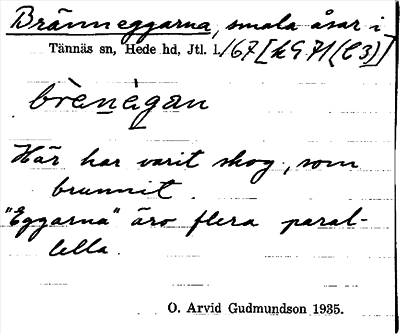 Bränneggarna, smala åsar i
Tännäs sn, Hede hd, Jtl. l./67
brènègan
Här har varit skog, som
brunnit.
"Eggarna" äro flera paral-
lella.
O. Arvid Gudmundson 1935.